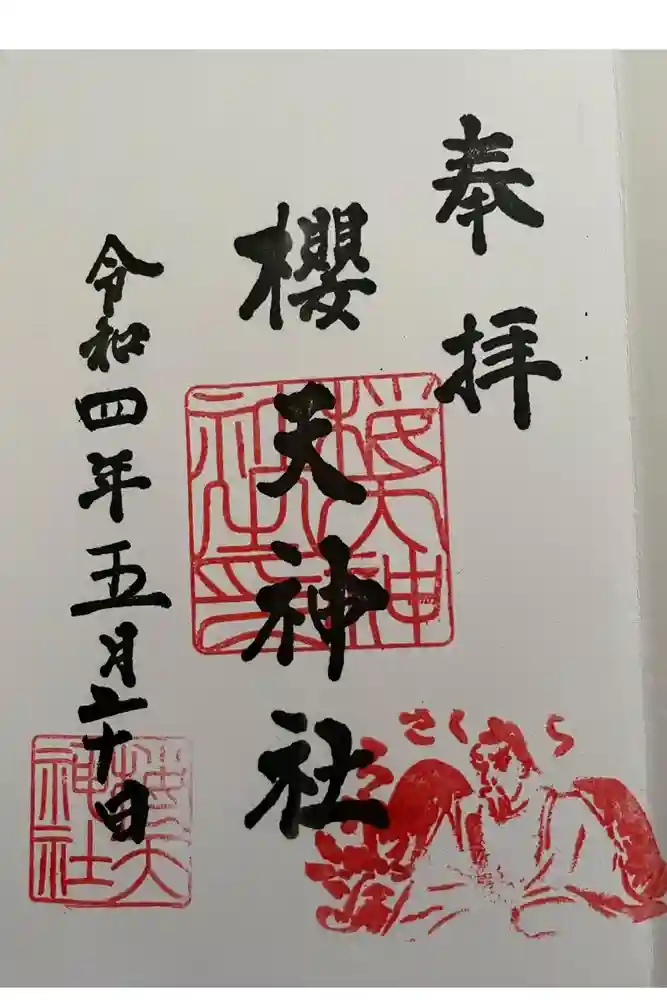 奉拝
櫻天神社
令和四年五月二十日
桜天神
社之印
桜天
神社
さくら